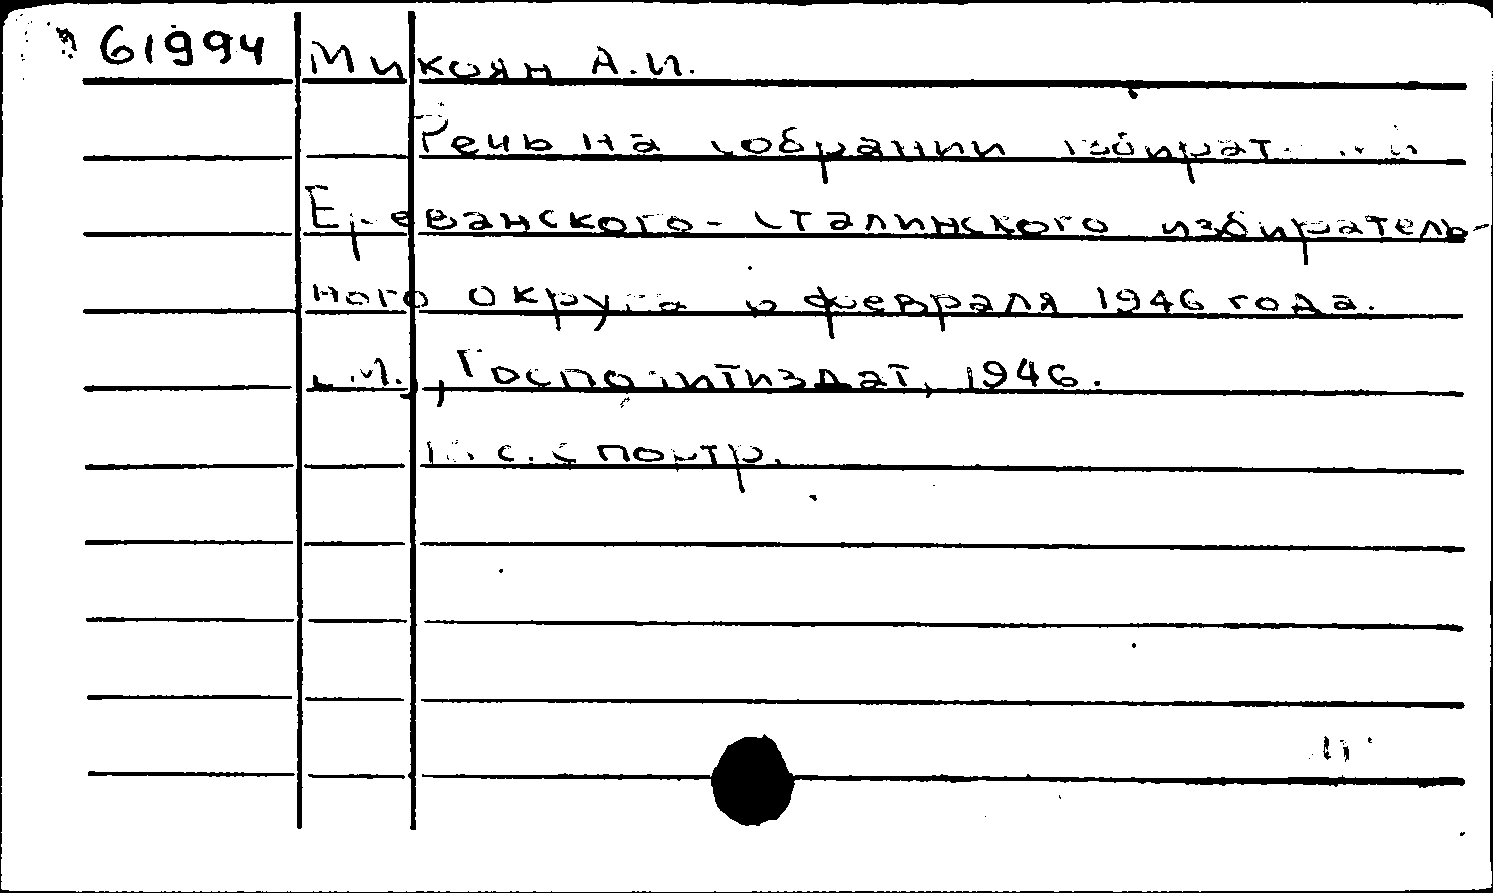 61994 Микоян А.И.
Речь на собрании избирателей
Ереванского-Сталинского избиратель-
ного округа 6 февраля 1946 года.
М., Госполитиздат, 1946.
с. с портр.